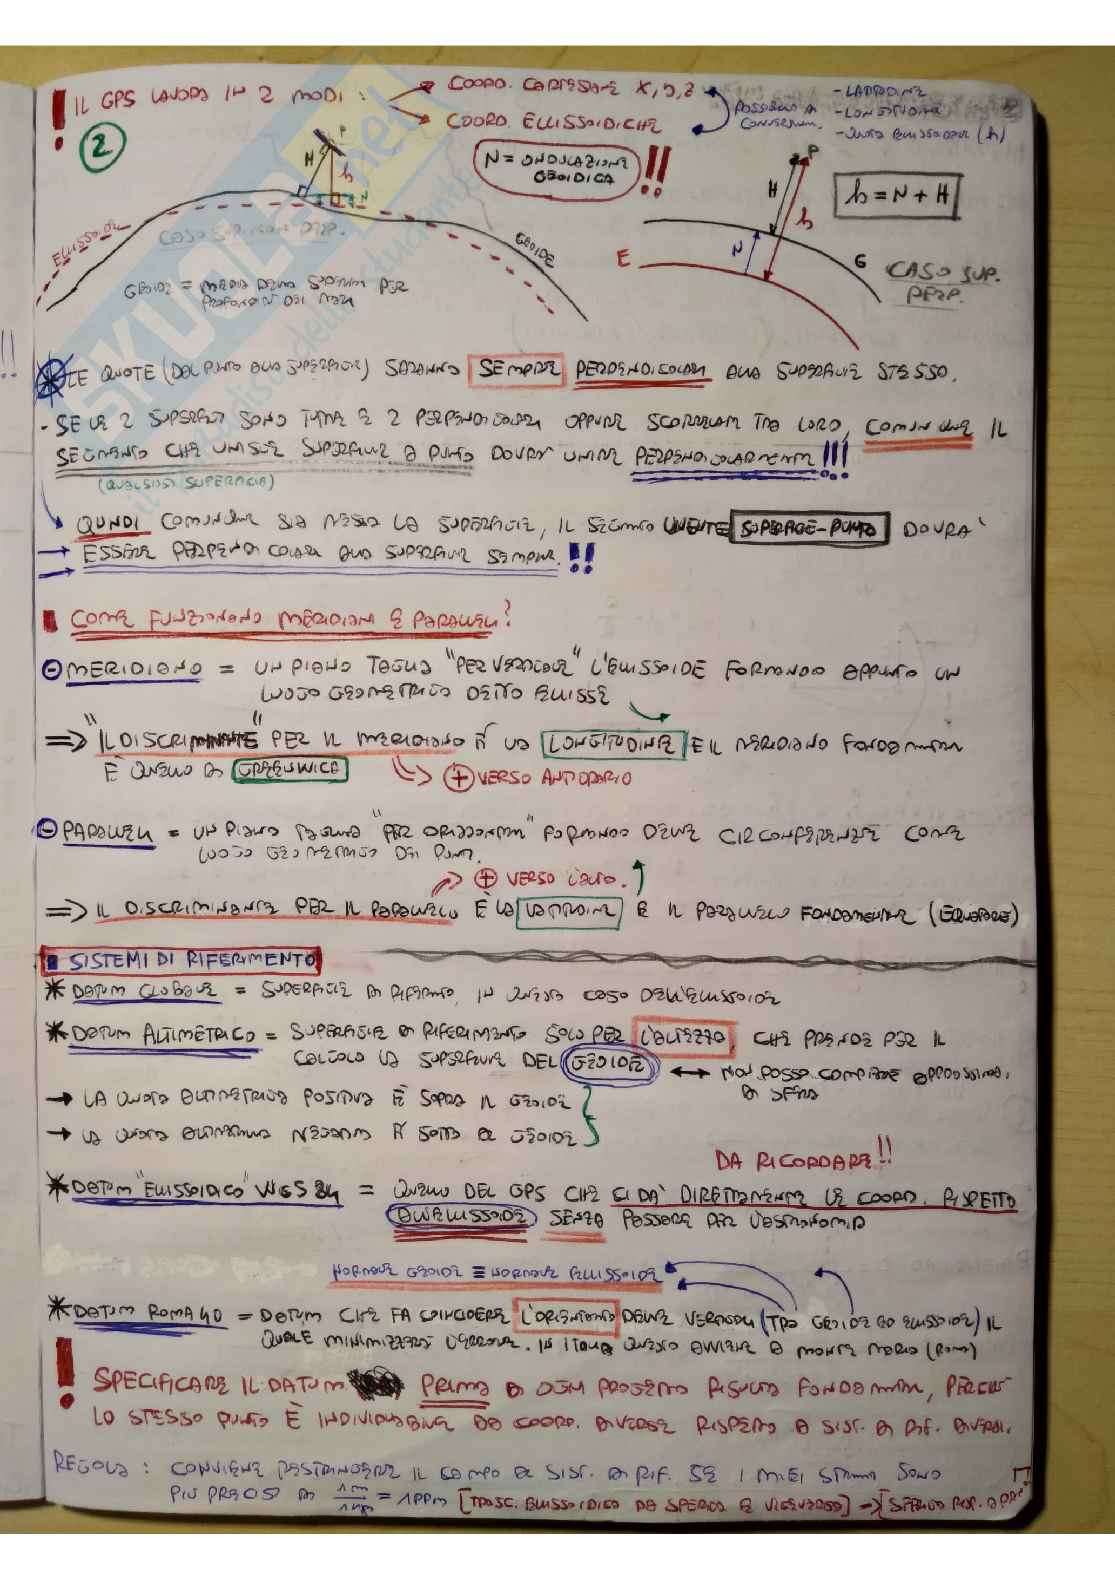 IL GPS LAVORA IN 2 MODI:
COORD. CARTESIANE X,Y,Z
COORD. ELLISSOIDICHE
POSSONO
CONVERTIRE
- LATITUDINE
- LONGITUDINE
- QUOTA ELLISSOIDICA (h)
2
N = ONDULAZIONE GEOIDICA !!
P
H
h
N
h = N + H
ELLISSOIDE
CASO SUP. NON PERP.
GEOIDE
GEOIDE = MEDIA DELLA SUPERFICIE PER
PROFONDITÀ DEI MARI
P
H
h
N
E
G
CASO SUP. PERP.
LE QUOTE (DAL PUNTO ALLA SUPERFICIE) SARANNO SEMPRE PERPENDICOLARI ALLA SUPERFICIE STESSO.
- SE LE 2 SUPERFICI SONO TUTTE E 2 PERPENDICOLARI OPPURE SCORRELATE TRA LORO, COMUNQUE IL
SEGMENTO CHE UNISCE SUPERFICIE A PUNTO DOVRÀ UNIRE PERPENDICOLARMENTE!!!
(QUALSIASI SUPERFICIE)
QUINDI COMUNQUE SIA MESSA LA SUPERFICIE, IL SEGMENTO SUPERFICIE-PUNTO DOVRÀ
ESSERE PERPENDICOLARE ALLA SUPERFICIE SEMPRE. !!
COME FUNZIONANO MERIDIANI E PARALLELI?
MERIDIANO = UN PIANO TAGLIA "PER VERTICALE" L'ELLISSOIDE FORMANDO APPUNTO UN
LUOGO GEOMETRICO DETTO ELLISSE
=> "IL DISCRIMINANTE" PER IL MERIDIANO È LA LONGITUDINE E IL MERIDIANO FONDAMENTALE
È QUELLO DI GREENWICH
+ VERSO ANTIORARIO
PARALLELI = UN PIANO TAGLIA "PER ORIZZONTALE" FORMANDO DELLE CIRCONFERENZE COME
LUOGO GEOMETRICO DEI PUNTI.
+ VERSO L'ALTO.
=> IL DISCRIMINANTE PER IL PARALLELO È LA LATITUDINE E IL PARALLELO FONDAMENTALE (EQUATORE)
SISTEMI DI RIFERIMENTO
* DATUM GLOBALE = SUPERFICIE DI RIFERIMENTO, IN QUESTO CASO DELL'ELLISSOIDE
* DATUM ALTIMETRICO = SUPERFICIE DI RIFERIMENTO SOLO PER L'ALTEZZA, CHE PRENDE PER IL
CALCOLO LA SUPERFICIE DEL GEOIDE ↔ NON POSSO COMPIERE APPROSSIMAZ.
DI SFERA
→ LA QUOTA ALTIMETRICA POSITIVA È SOPRA IL GEOIDE
→ LA QUOTA ALTIMETRICA NEGATIVA È SOTTO IL GEOIDE
DA RICORDARE!!
* DATUM "ELLISSOIDICO" WGS84 = QUELLO DEL GPS CHE CI DÀ DIRETTAMENTE LE COORD. RISPETTO
ALL'ELLISSOIDE SENZA PASSARE PER L'ASTRONOMIA
NORMALE GEOIDE ≡ NORMALE ELLISSOIDE
* DATUM ROMA40 = DATUM CHE FA COINCIDERE L'ORIENTAMENTO DELLE VERTICALI (TRA GEOIDE ED ELLISSOIDE) IL
QUALE MINIMIZZERÀ L'ERRORE. IN ITALIA QUESTO AVVIENE A MONTE MARIO (ROMA)
! SPECIFICARE IL DATUM PRIMA DI OGNI PROGETTO RISULTA FONDAMENTALE, PERCHÉ
LO STESSO PUNTO È INDIVIDUABILE DA COORD. DIVERSE RISPETTO A SIST. DI RIF. DIVERSI.
REGOLA: CONVIENE RESTRINGERE IL CAMPO DI SIST. DI RIF. SE I MIEI STRUM SONO
PIÙ PRECISI DI 1 m / 1 km = 1 PPM [TRASC. ELLISSOIDICO DA SFERICO E VICEVERSA]